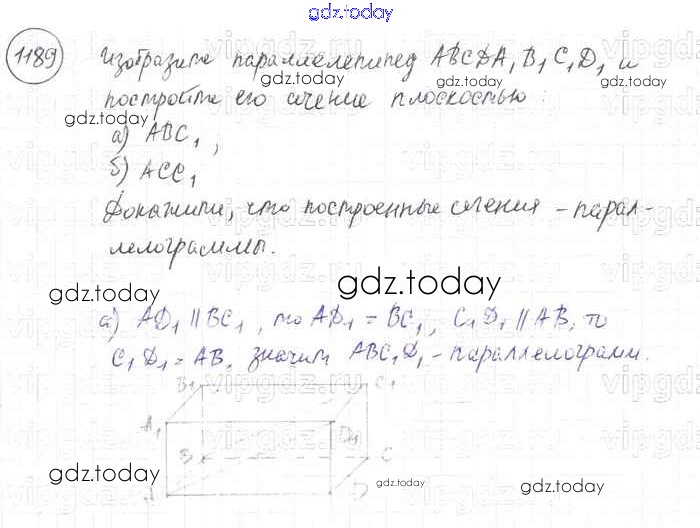 gdz.today
1189 Изобразите параллелепипед ABCDA₁B₁C₁D₁ и
постройте его сечение плоскостью:
а) ABC₁,
б) ACC₁
Докажите, что построенные сечения – парал-
лелограммы.
gdz.today
gdz.today
а) AD₁ || BC₁, то AD₁ = BC₁, C₁D₁ || AB, то
C₁D₁ = AB, значит ABC₁D₁ – параллелограмм.
B₁ C₁
A₁ D₁
B C
A D
gdz.today
gdz.today
gdz.today